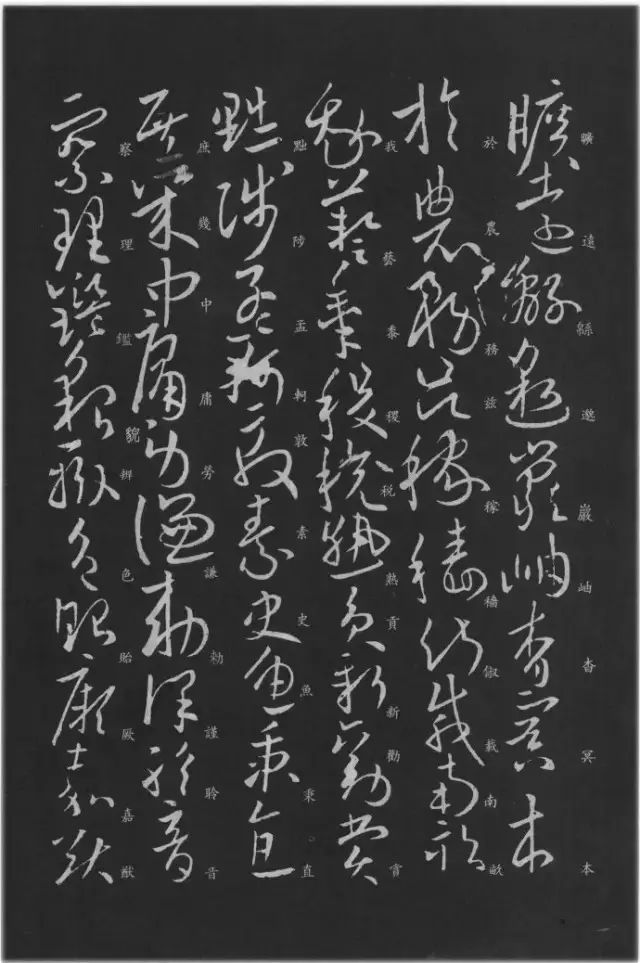 曠遠緜邈巖岫杳冥本
於農務兹稼穡俶載南畝
我藝黍稷稅熟貢新勸賞
黜陟孟軻敦素史魚秉直
庶幾中庸勞謙勅謹聆音
察理鑑貌辨色貽厥嘉猷